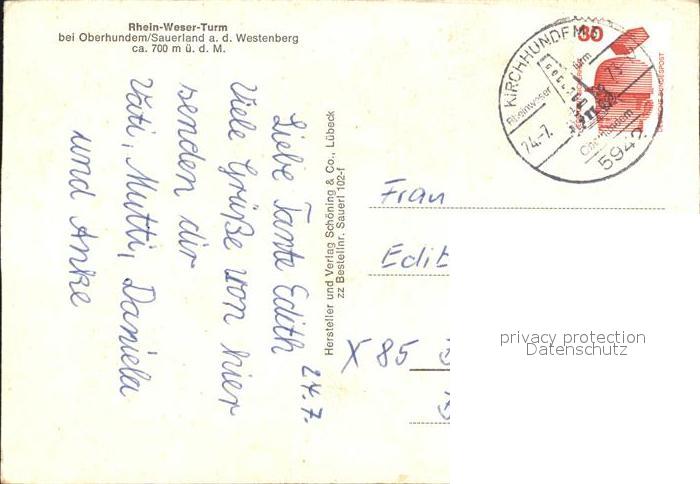 Rhein-Weser-Turm
bei Oberhundem/Sauerland a. d. Westenberg
ca. 700 m ü. d. M.
24.7.
Liebe Tante Edith
Viele Grüße von hier
senden dir
Vati, Mutti, Daniela
und Anke
Hersteller und Verlag Schöning & Co., Lübeck
zz Bestellnr. Sauerl 102-f
KIRCHHUNDEM
Rheinweser
Oberhundem
5942
30
DEUTSCHE BUNDESPOST
Frau
Edit
X 85
privacy protection
Datenschutz